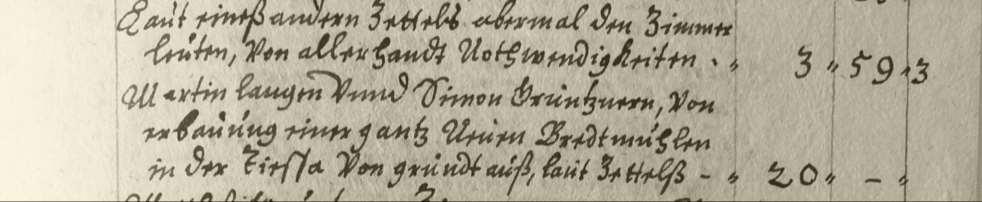 Laut eineß andern Zettels abermal den Zimmer
leüten, Von allerhandt Nothwendigkeiten . „ 3 „ 59 „ 3
Martin langen Vnnd Simon Grüntznern, Von
erbauüng einer gantz Neüen Bredtmühlen
in der Tieffa Von gründt auß, laüt Zettelß - „ 20 „ - „